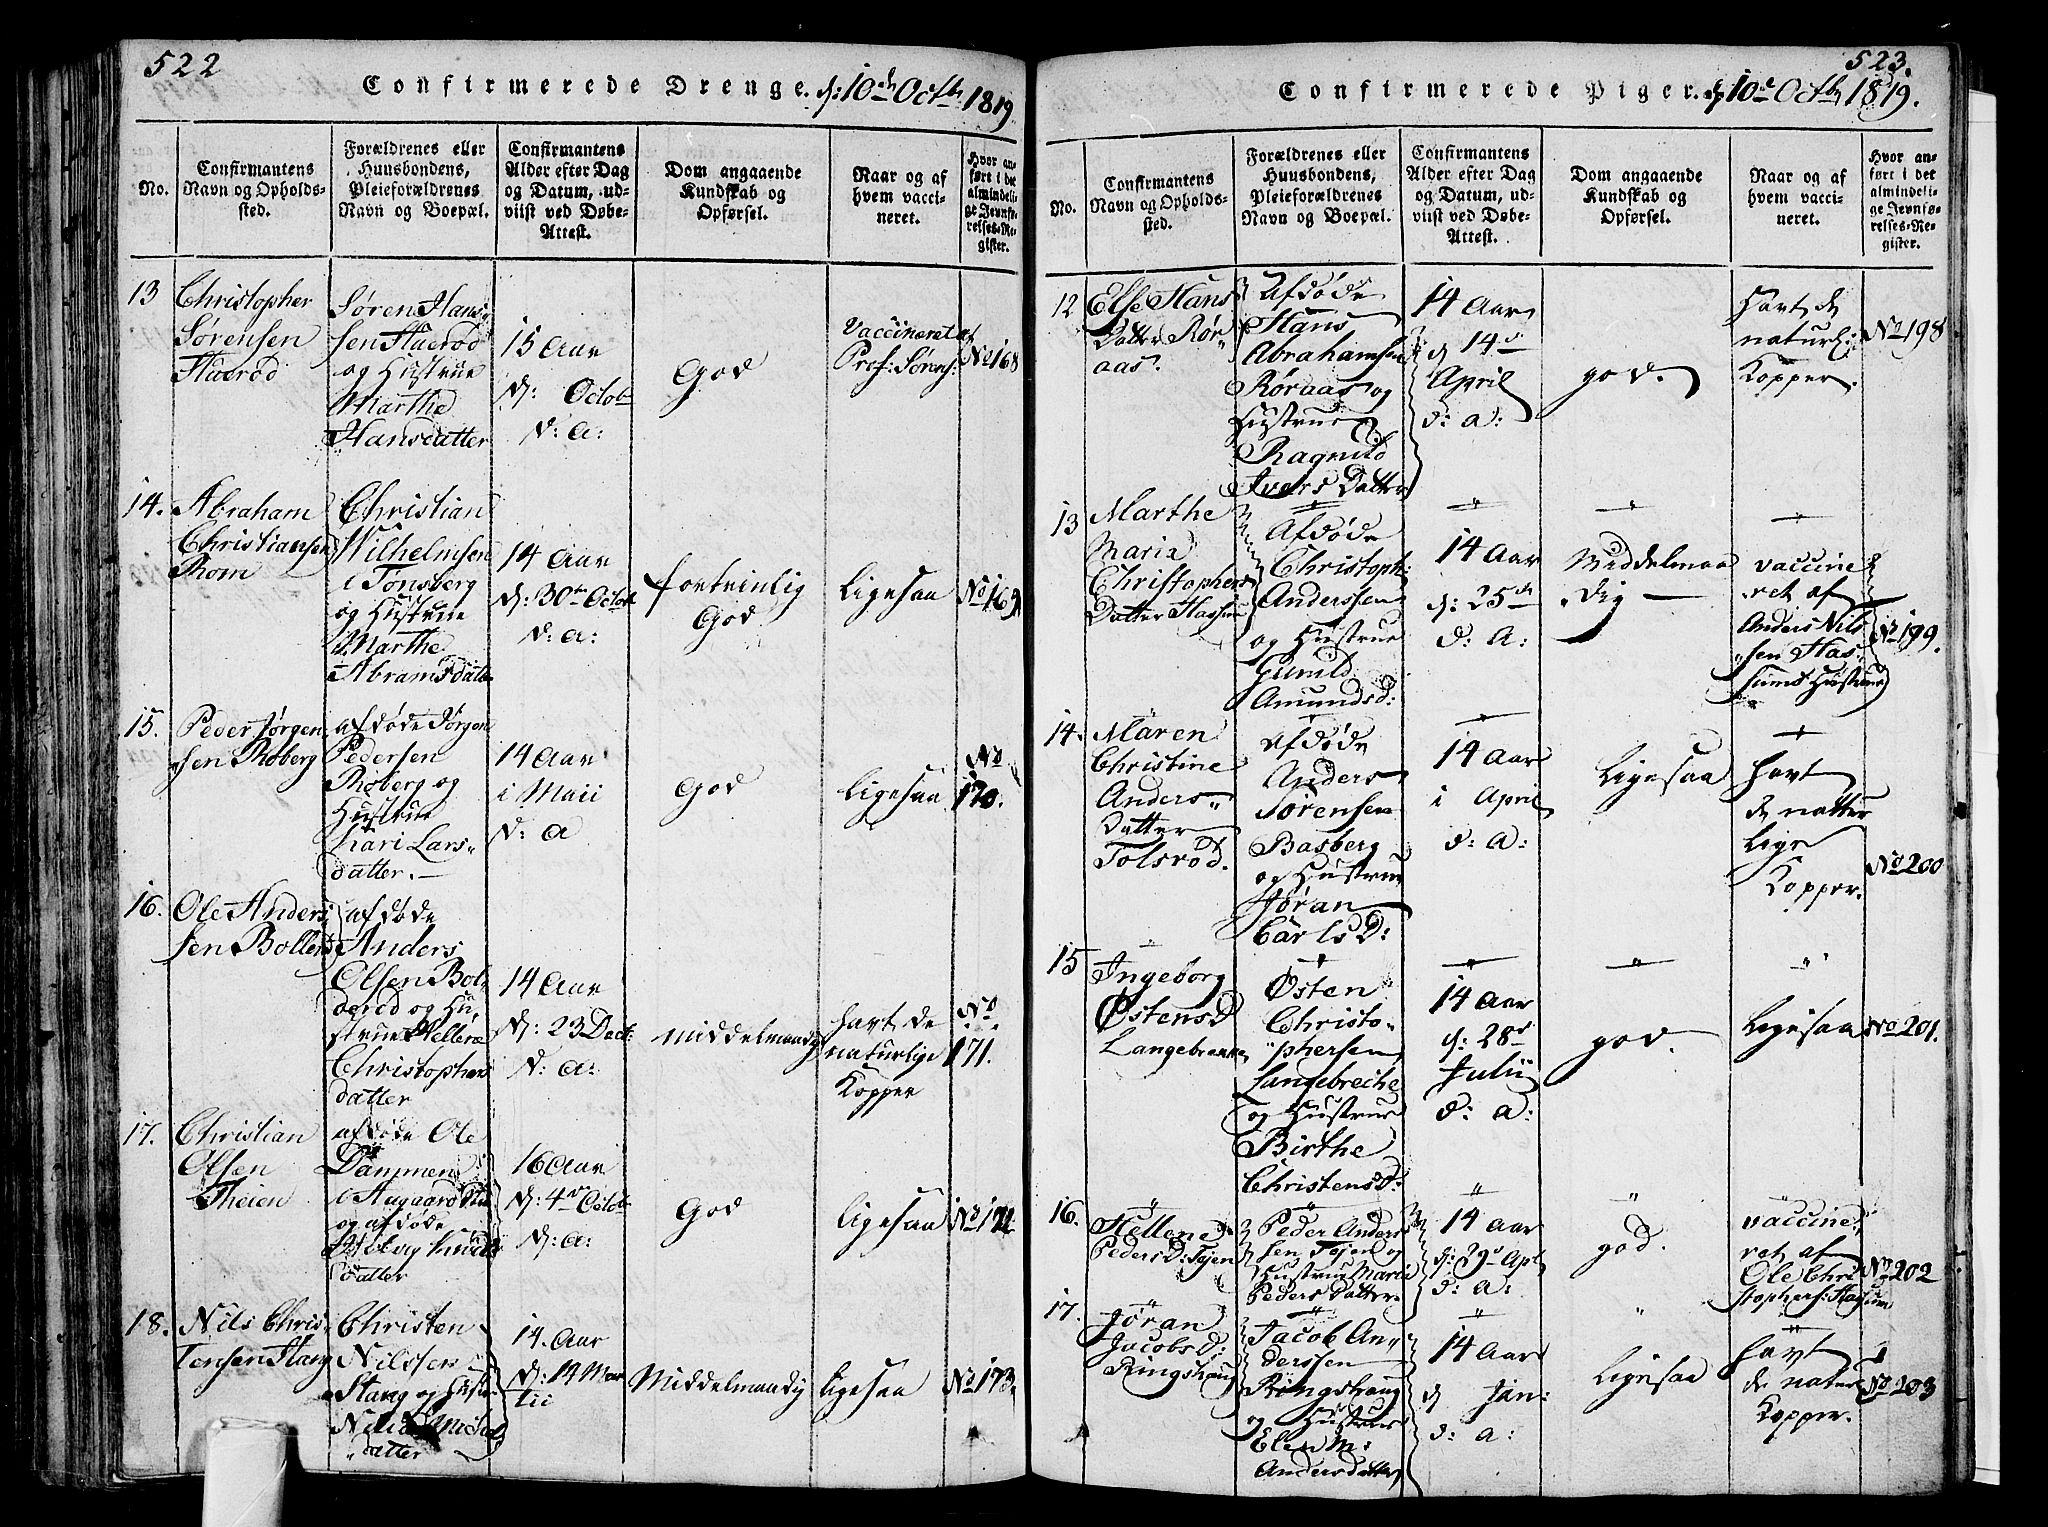 522
Confirmerede Drenge. d: 10de Octb 1819
No.
Confirmantens
Navn og Opholds-
sted.
Forældrenes eller
Huusbondens,
Pleieforældrenes
Navn og Boepæl.
Confirmantens
Alder efter Dag
og Datum, ud-
viist ved Døbe-
Attest.
Dom angaaende
Kundskab og
Opførsel.
Naar og af
hvem vacci-
neret.
Hvor an-
ført i det
almindeli-
ge Jevnfø-
relses-Re-
gister.
13
Christopher
Sørensen
Haerød
Søren Han-
sen Haerød
og Hustrue
Marthe
Hansdatter
15 Aar
d: Octob
d: a:
God
Vaccineret af
Prof: Sørens:
No 168
14.
Abraham
Christiansen
Rom
Christian
Wilhelmsen
i Tønsberg
og Hustrue
Marthe
Abramsdatt
14 Aar
d: 30te Octob
d: a:
fortrinlig
God
Ligesaa
No 169
15.
Peder Jørgen
sen Roberg
afdøde Jørgen
Pedersen
Roberg og
Hustrue
Kari Lars-
datter.
14 Aar
i Maii
d: a
God
Ligesaa
No
170.
16.
Ole Anders
sen Bollerd
afdøde
Anders
Olsen Bol-
dered og Hu-
strue Hellene
Christophers
datter
14 Aar
d: 23 Dect:
d: a:
middelmaadig
havt de
naturlige
Kopper
No
171.
17.
Christian
Olsen
Theien
afdøde Ole
Dammen
i Aagaard
og afdøde
Knuds
datter
16 Aar
d: 4de Octob
d: a:
God
Ligesaa
No 172
18.
Nils Chris-
tensen Stang
Christen
Nilssen
Stang og Hustr
datter
14. Aar
d: 14 Mar
tii
Middelmaadig
Ligesaa
No 173
523.
Confirmerede Piger. d 10de Octb 1819.
No.
Confirmantens
Navn og Opholds-
sted.
Forældrenes eller
Huusbondens,
Pleieforældrenes
Navn og Boepæl.
Confirmantens
Alder efter Dag
og Datum, ud-
viist ved Døbe-
Attest.
Dom angaaende
Kundskab og
Opførsel.
Naar og af
hvem vacci-
neret.
Hvor an-
ført i det
almindeli-
ge Jevnfø-
relses-Re-
gister.
12
Else Hans
Datter Rør
aas.
Afdøde
Hans
Abrahamsen
Røraas og
Hustrue
Ragnild
Ivers Datter
14 Aar
d 14de
April
d: a:
god.
Havt de
naturl:
Kopper.
No 198
13
Marthe
Maria
Christophers
Datter Hassum
Afdøde
Christoph:
Anderssen
og Hustrue
Gunild
Amundsd:
14 Aar
d: 25de
d: A:
Middelmaa
dig
vaccine
ret af
Anders Nils
sen Has
sums Hustrue
No 199.
14.
Maren
Christine
Anders
Datter
Tolsrød.
Afdøde
Anders
Sørensen
Basberg
og Hustrue
Jøran
Carls D:
14 Aar
i April
d: a:
Ligesaa
havt
de nattur
lige
Kopper.
No 200
15
Ingeborg
Østensd
Langebrekke
Østen
Christo-
phersen
Langebreche
og Hustrue
Birthe
Christensd:
14 Aar
d: 28de
Julii
d: a:
god.
Ligesaa
No 201.
16.
Hellene
Pedersd: Tejen
Peder Anders
sen Tejen og
Hustrue Marie
Peders Datter
14 Aar
d: 29de Apl
d: a:
god.
vaccine
ret af
Ole Chri
stophers: Hassum
No 202
17.
Jøran
Jacobsd:
Ringshaug
Jacob An-
derssen
Ringshaug
og Hustrue
Elen M:
Andersdatter
14 Aar
d Jan:
d: a:
Ligesaa
havt
de natur
Kopper.
No 203